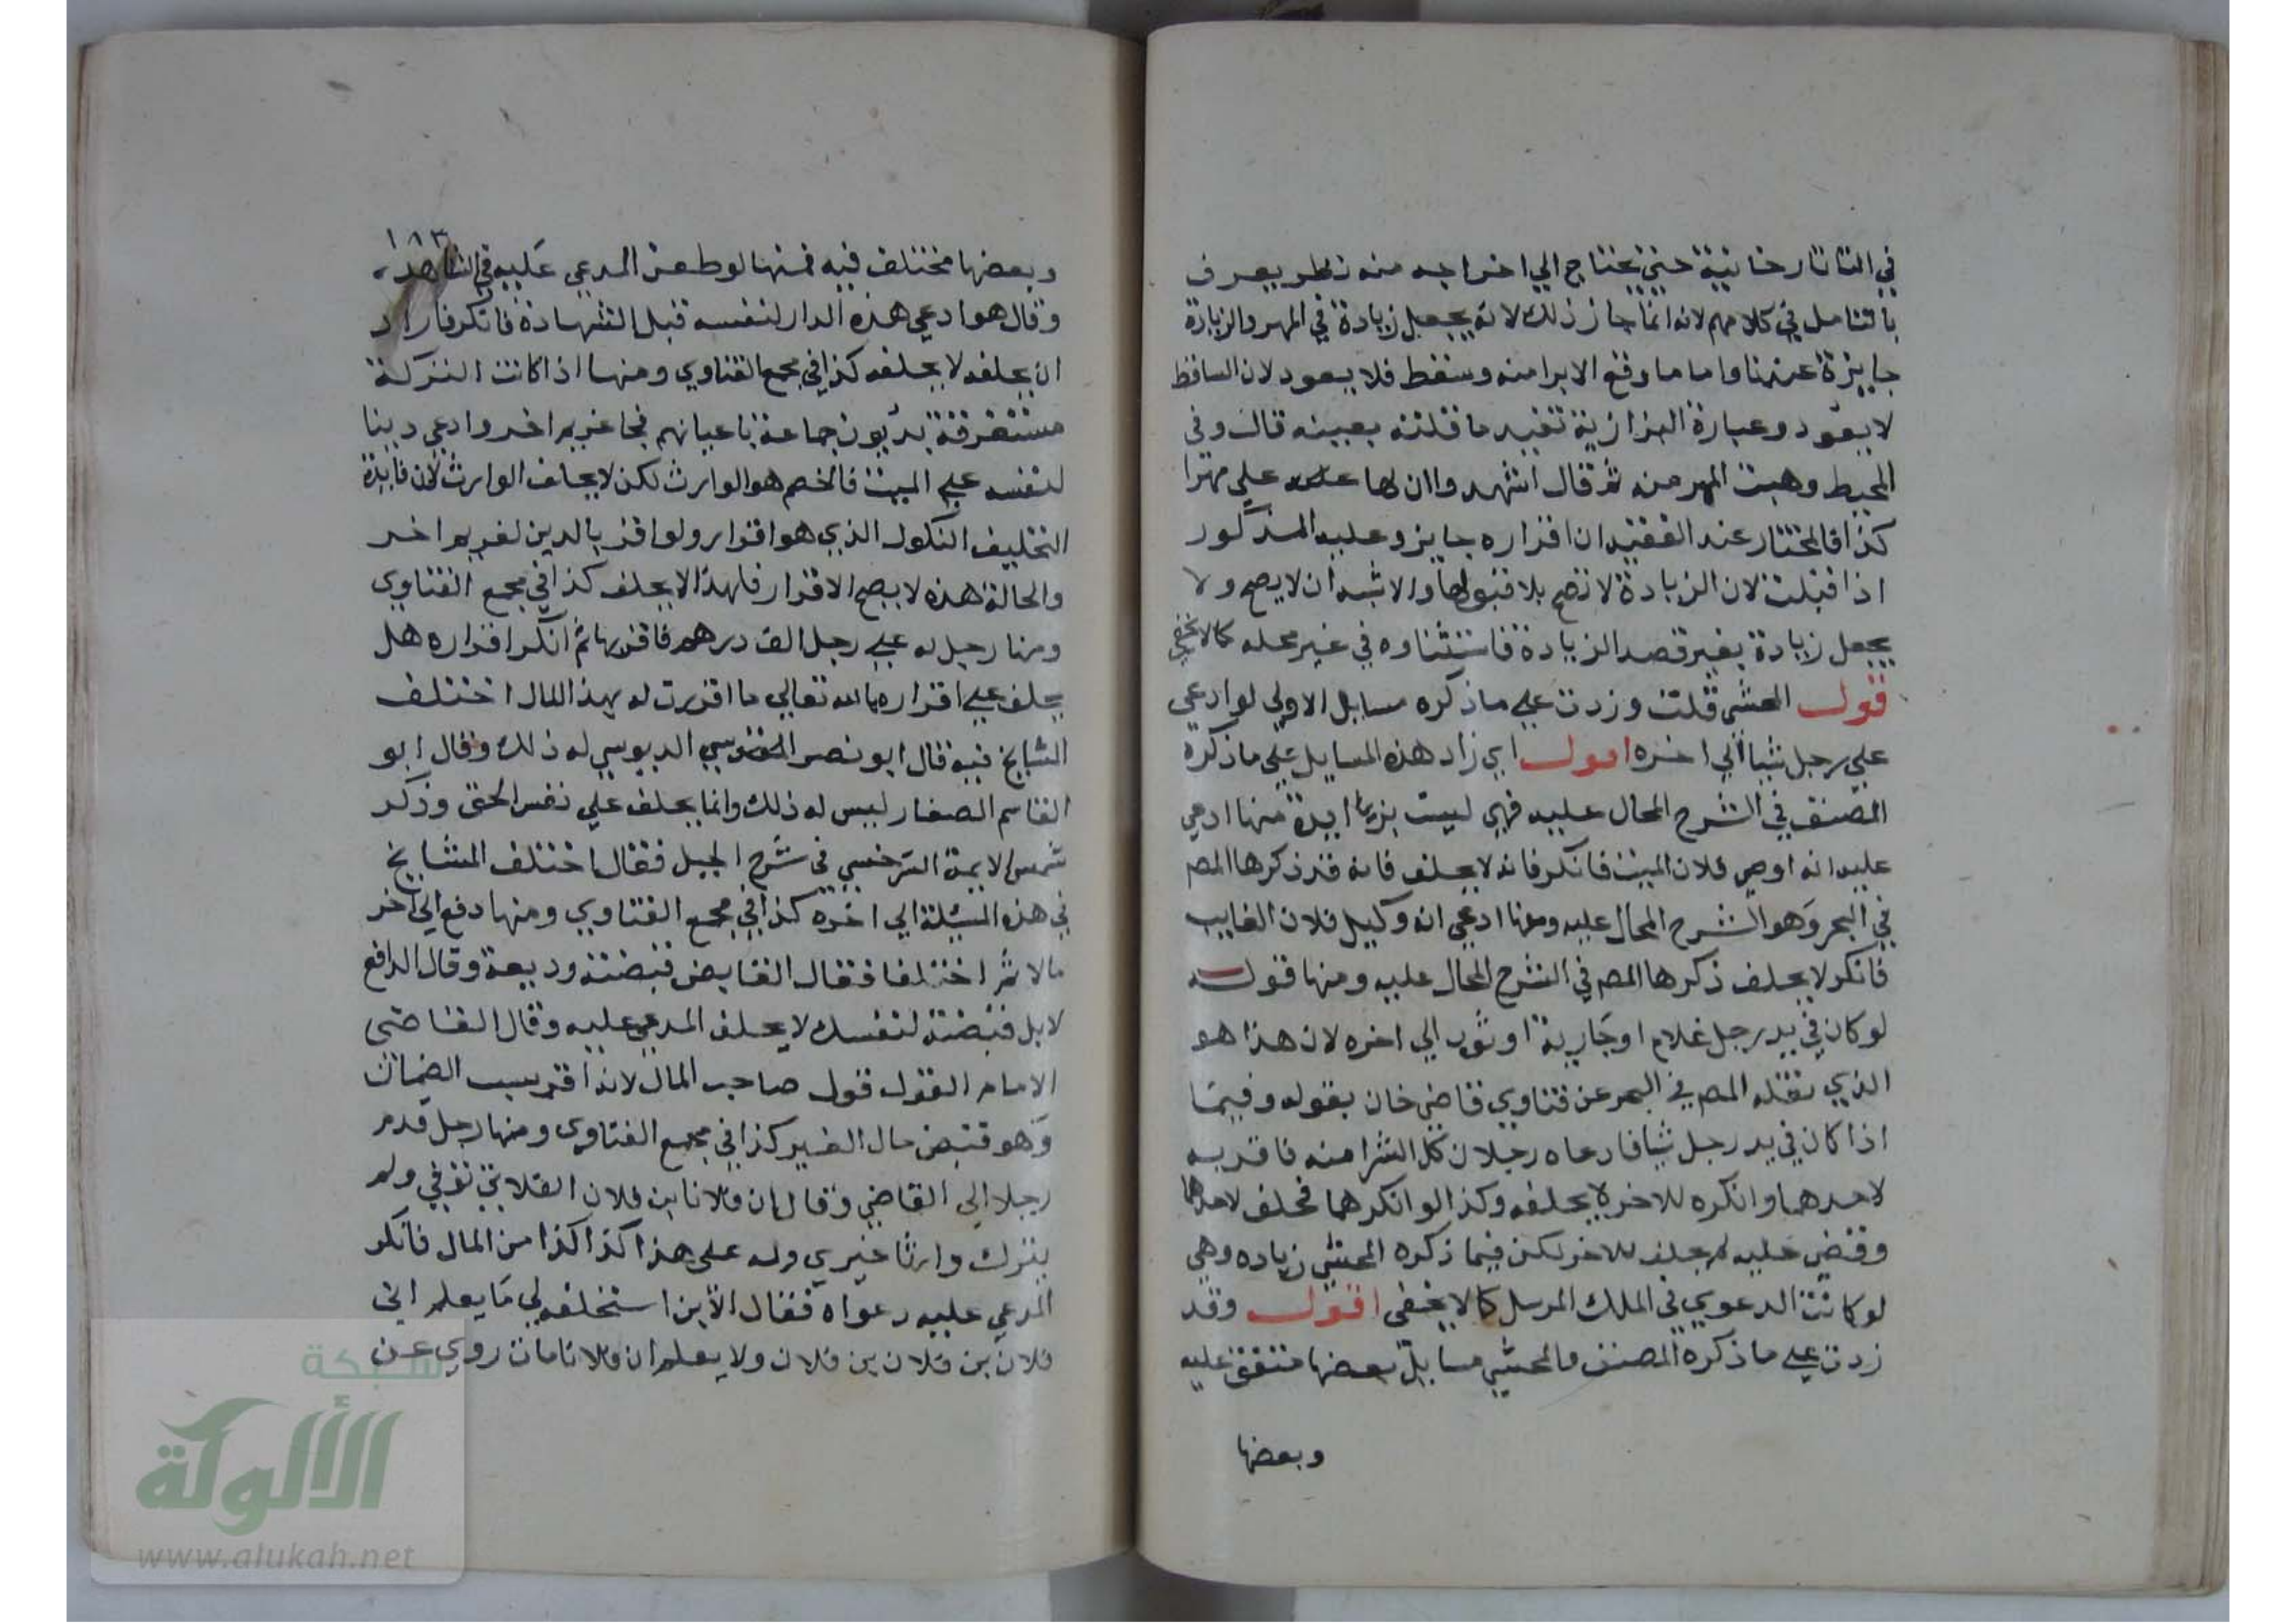 في التاتارخانية حيني يحتاج الي اخراجه منه نظر يعرف
بالتامل في كلامهم لانه انما جاز ذلك لانه يجعل زيادة في المهر والزيادة
جايزة عندنا واما ما وقع الابرا منه وسقط فلا يعود لان الساقط
لا يعود وعبارة البزازية تفيد ما قلته بعينه قال وفي
المحيط وهبت المهر منه ثم قال اشهدوا ان لها علي مهرا
كذا فالمختار عند الفقيه ان اقراره جايز وعليه المذكور
اذا قبلت لان الزيادة لا تصح بلا قبولها والاشبه ان لا يصح ولا
يجعل زيادة بغير قصد الزيادة فاستثناوه في غير محله كما لا يخفي
قول المحشي قلت وزدت علي ما ذكره مسايل الاولي لو ادعي
علي رجل شيا الي اخره اقول اي زاد هذه المسايل علي ما ذكره
المصنف في الشرح المحال عليه فهي ليست بزايدة منها ادعي
عليه انه اوصي فلان الميت فانكر فانه لا يحلف فانه قد ذكرها المص
في البحر وهو الشرح المحال عليه ومنها ادعي انه وكيل فلان الغايب
فانكر لا يحلف ذكرها المص في الشرح المحال عليه ومنها قوله
لو كان في يد رجل غلام او جارية او ثوب الي اخره لان هذا هو
الذي نقله المص في البحر عن فتاوي قاضي خان بقوله وفيما
اذا كان في يد رجل شيا فادعاه رجلان كل الشرا منه فاقر به
لاحدهما وانكره للاخر لا يحلفه وكذا لو انكرهما فحلف لاحدهما
وقضي عليه لم يحلف للاخر لكن فيما ذكره المحشي زياده وهي
لو كانت الدعوي في الملك المرسل كما لا يخفي اقول وقد
زدت علي ما ذكره المصنف والمحشي مسايل بعضها متفق عليه
وبعضها
١٨٣
وبعضها مختلف فيه فمنها لو طعن المدعي عليه في الشاهد
وقال هو ادعي هذه الدار لنفسه قبل الشهادة فانكر فاراد
ان يحلفه لا يحلفه كذا في مجمع الفتاوي ومنها اذا كانت التركة
مستغرقة بديون جماعة باعيانهم فجا غريم اخر وادعي دينا
لنفسه علي الميت فالخصم هو الوارث لكن لا يحلف الوارث لان فايدة
التحليف النكول الذي هو اقرار ولو اقر بالدين لغريم اخر
والحالة هذه لا يصح الاقرار فلهذا لا يحلف كذا في مجمع الفتاوي
ومنها رجل له علي رجل الف درهم فاقر بها ثم انكر اقراره هل
يحلف علي اقراره بالله تعالي ما اقررت له بهذا المال اختلف
المشايخ فيه قال ابو نصر الدبوسي له ذلك وقال ابو
القاسم الصفار ليس له ذلك وانما يحلف علي نفس الحق وذكر
شمس الايمة السرخسي في شرح الحيل فقال اختلف المشايخ
في هذه المسئلة الي اخره كذا في مجمع الفتاوي ومنها دفع الي اخر
مالا ثم اختلفا فقال القابض قبضته وديعة وقال الدافع
لا بل قبضته لنفسك لا يحلف المدعي عليه وقال القاضي
الامام القول قول صاحب المال لانه اقر بسبب الضمان
وهو قبض مال الغير كذا في مجمع الفتاوي ومنها رجل قدم
رجلا الي القاضي وقال ان فلانا ابن فلان الفلاني توفي ولم
يترك وارثا غيري وله علي هذا كذا كذا من المال فانكر
المدعي عليه دعواه فقال الابن استحلفه لي ما يعلم اني
فلان بن فلان بن فلان ولا يعلم ان فلانا مات روي عن
شبكة
الألوكة
www.alukah.net